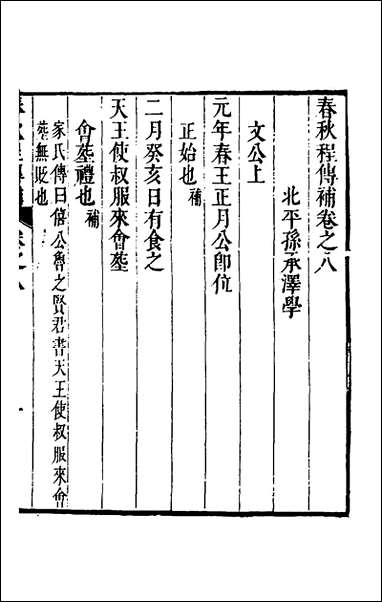 春秋程傳補卷之八
北平孫承澤學
文公上
元年春王正月公卽位
正始也補
二月癸亥日有食之
天王使叔服來會塟
會塟禮也補
家氏傳曰僖公魯之賢君書天王使叔服來會
塟無貶也